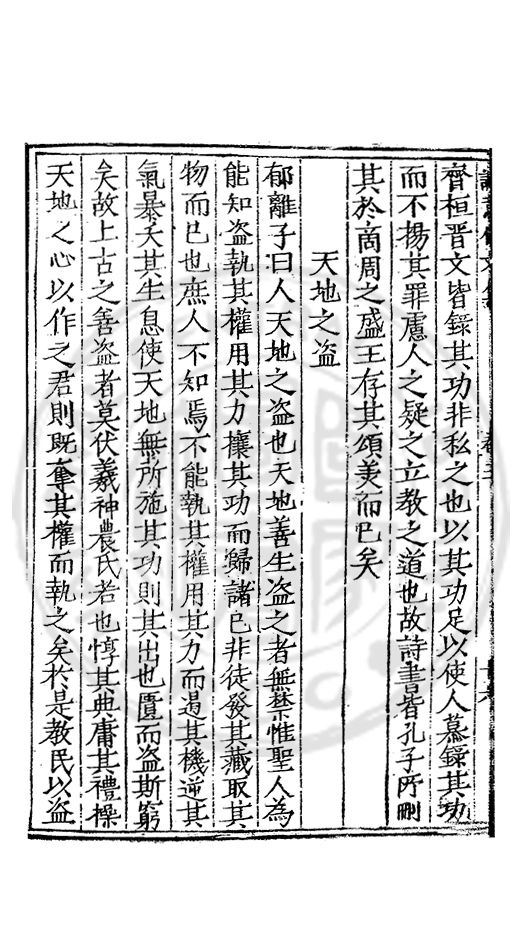 齊桓晉文皆錄其功非私之也以其功足以使人慕錄其功
而不揚其罪慮人之疑之立教之道也故詩書皆孔子所刪
其於商周之盛王存其頌美而已矣
天地之盜
郁離子曰人天地之盜也天地善生盜之者無禁惟聖人為
能知盜執其權用其力攘其功而歸諸己非徒發其藏取其
物而已也庶人不知焉不能執其權用其力而遏其機逆其
氣暴夭其生息使天地無所施其功則其出也匱而盜斯窮
矣故上古之善盜者莫伏羲神農氏若也惇其典庸其禮操
天地之心以作之君則既奪其權而執之矣於是教民以盜